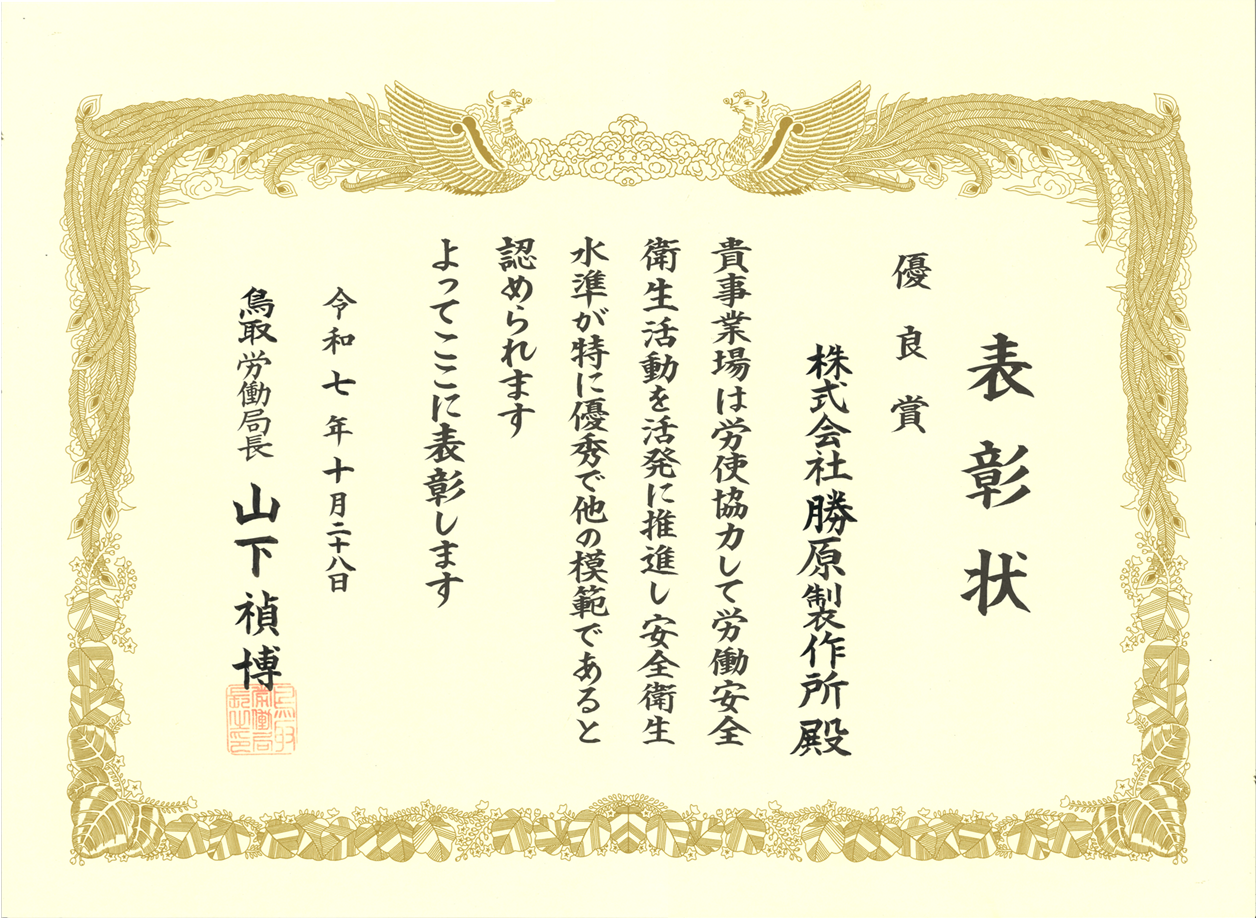 表彰状
優良賞
株式会社勝原製作所殿
貴事業場は労使協力して労働安全
衛生活動を活発に推進し安全衛生
水準が特に優秀で他の模範であると
認められます
よってここに表彰します
令和七年十月二十八日
鳥取労働局長 山下禎博
鳥取
労働局
長之印